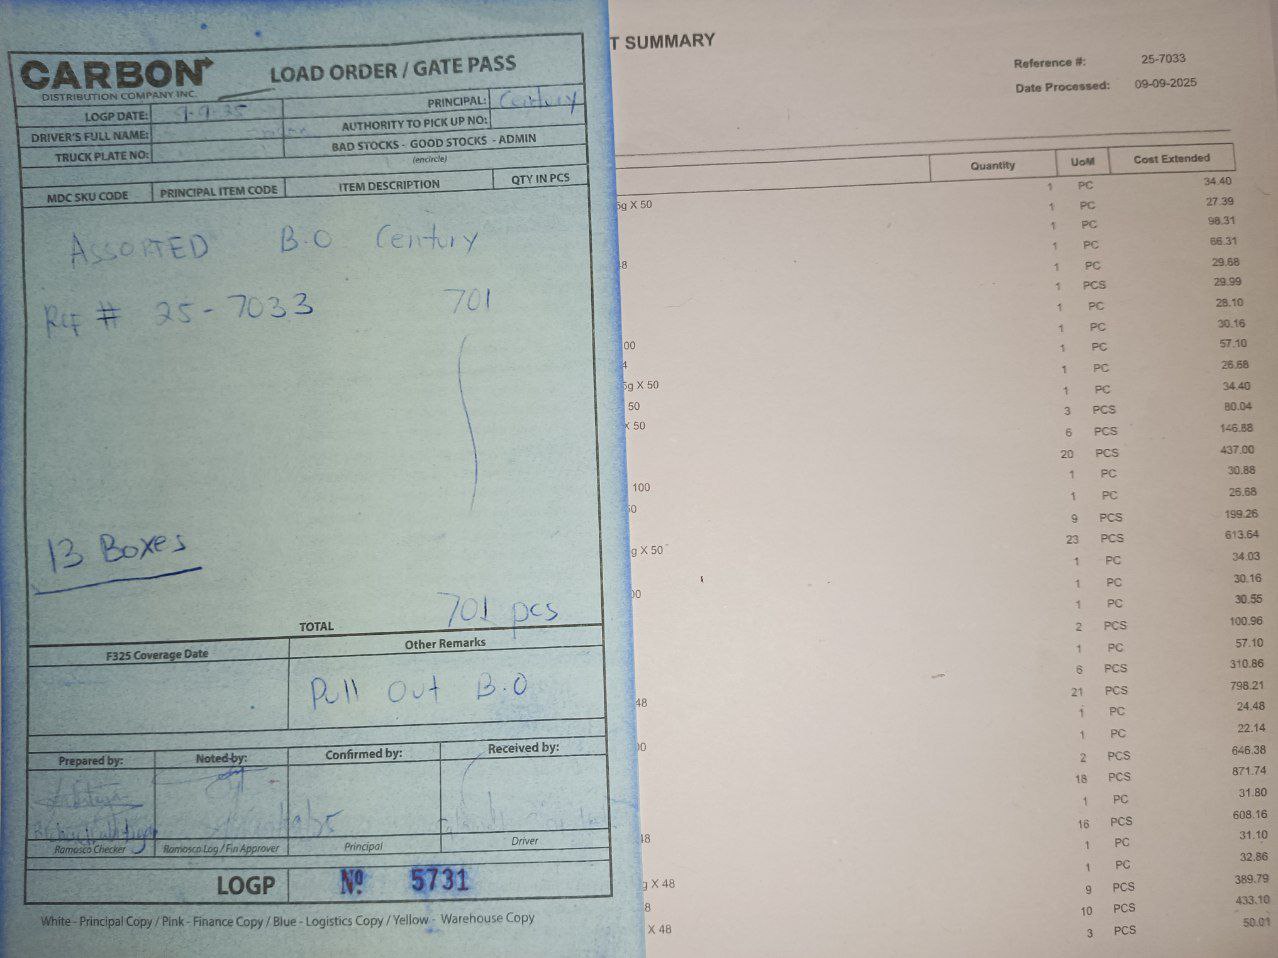 CARBON
DISTRIBUTION COMPANY INC.
LOAD ORDER / GATE PASS
LOGP DATE: 9-9-25
PRINCIPAL: Century
DRIVER'S FULL NAME:
AUTHORITY TO PICK UP NO:
TRUCK PLATE NO:
BAD STOCKS - GOOD STOCKS - ADMIN
(encircle)
MDC SKU CODE PRINCIPAL ITEM CODE ITEM DESCRIPTION QTY IN PCS
ASSORTED B.O Century
Ref # 25-7033 701
13 Boxes
701 pcs
TOTAL
F325 Coverage Date Other Remarks
Pull Out B.O
Prepared by: Noted by: Confirmed by: Received by:
Ramosco Checker Ramosco Log / Fin Approver Principal Driver
LOGP Nº 5731
White - Principal Copy / Pink - Finance Copy / Blue - Logistics Copy / Yellow - Warehouse Copy
T SUMMARY
Reference #: 25-7033
Date Processed: 09-09-2025
Quantity UoM Cost Extended
1 PC 34.40
5g X 50 1 PC 27.39
1 PC 98.31
1 PC 66.31
48 1 PC 29.68
1 PCS 29.99
1 PC 28.10
1 PC 30.16
00 1 PC 57.10
4 1 PC 26.68
5g X 50 1 PC 34.40
50 3 PCS 80.04
X 50 6 PCS 146.88
20 PCS 437.00
1 PC 30.88
100 1 PC 26.68
50 9 PCS 199.26
23 PCS 613.64
g X 50 1 PC 34.03
1 PC 30.16
00 1 PC 30.55
2 PCS 100.96
1 PC 57.10
6 PCS 310.86
21 PCS 798.21
48 1 PC 24.48
1 PC 22.14
00 2 PCS 646.38
18 PCS 871.74
1 PC 31.80
16 PCS 608.16
48 1 PC 31.10
1 PC 32.86
g X 48 9 PCS 389.79
8 10 PCS 433.10
X 48 3 PCS 50.01